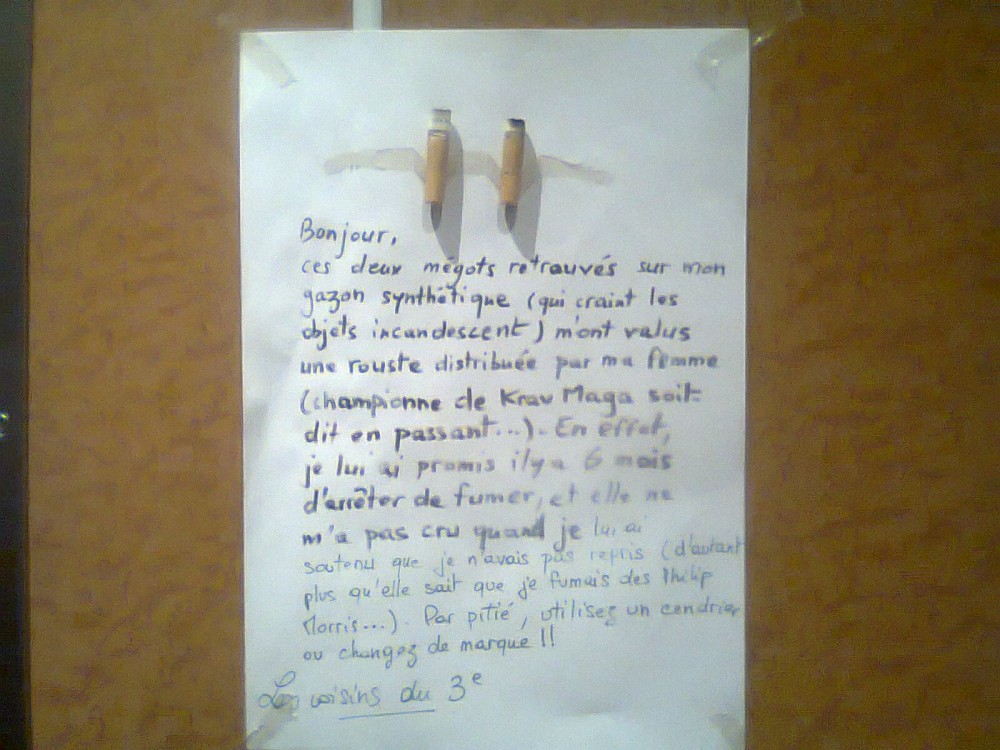 Bonjour,
ces deux mégots retrouvés sur mon
gazon synthétique (qui craint les
objets incandescent) m'ont valus
une rouste distribuée par ma femme
(championne de Krav Maga soit
dit en passant...). En effet,
je lui ai promis il y a 6 mois
d'arrêter de fumer, et elle ne
m'a pas cru quand je lui ai
soutenu que je n'avais pas repris (d'autant
plus qu'elle sait que je fumais des Philip
Morris...). Par pitié, utilisez un cendrier
ou changez de marque !!
Les voisins du 3e